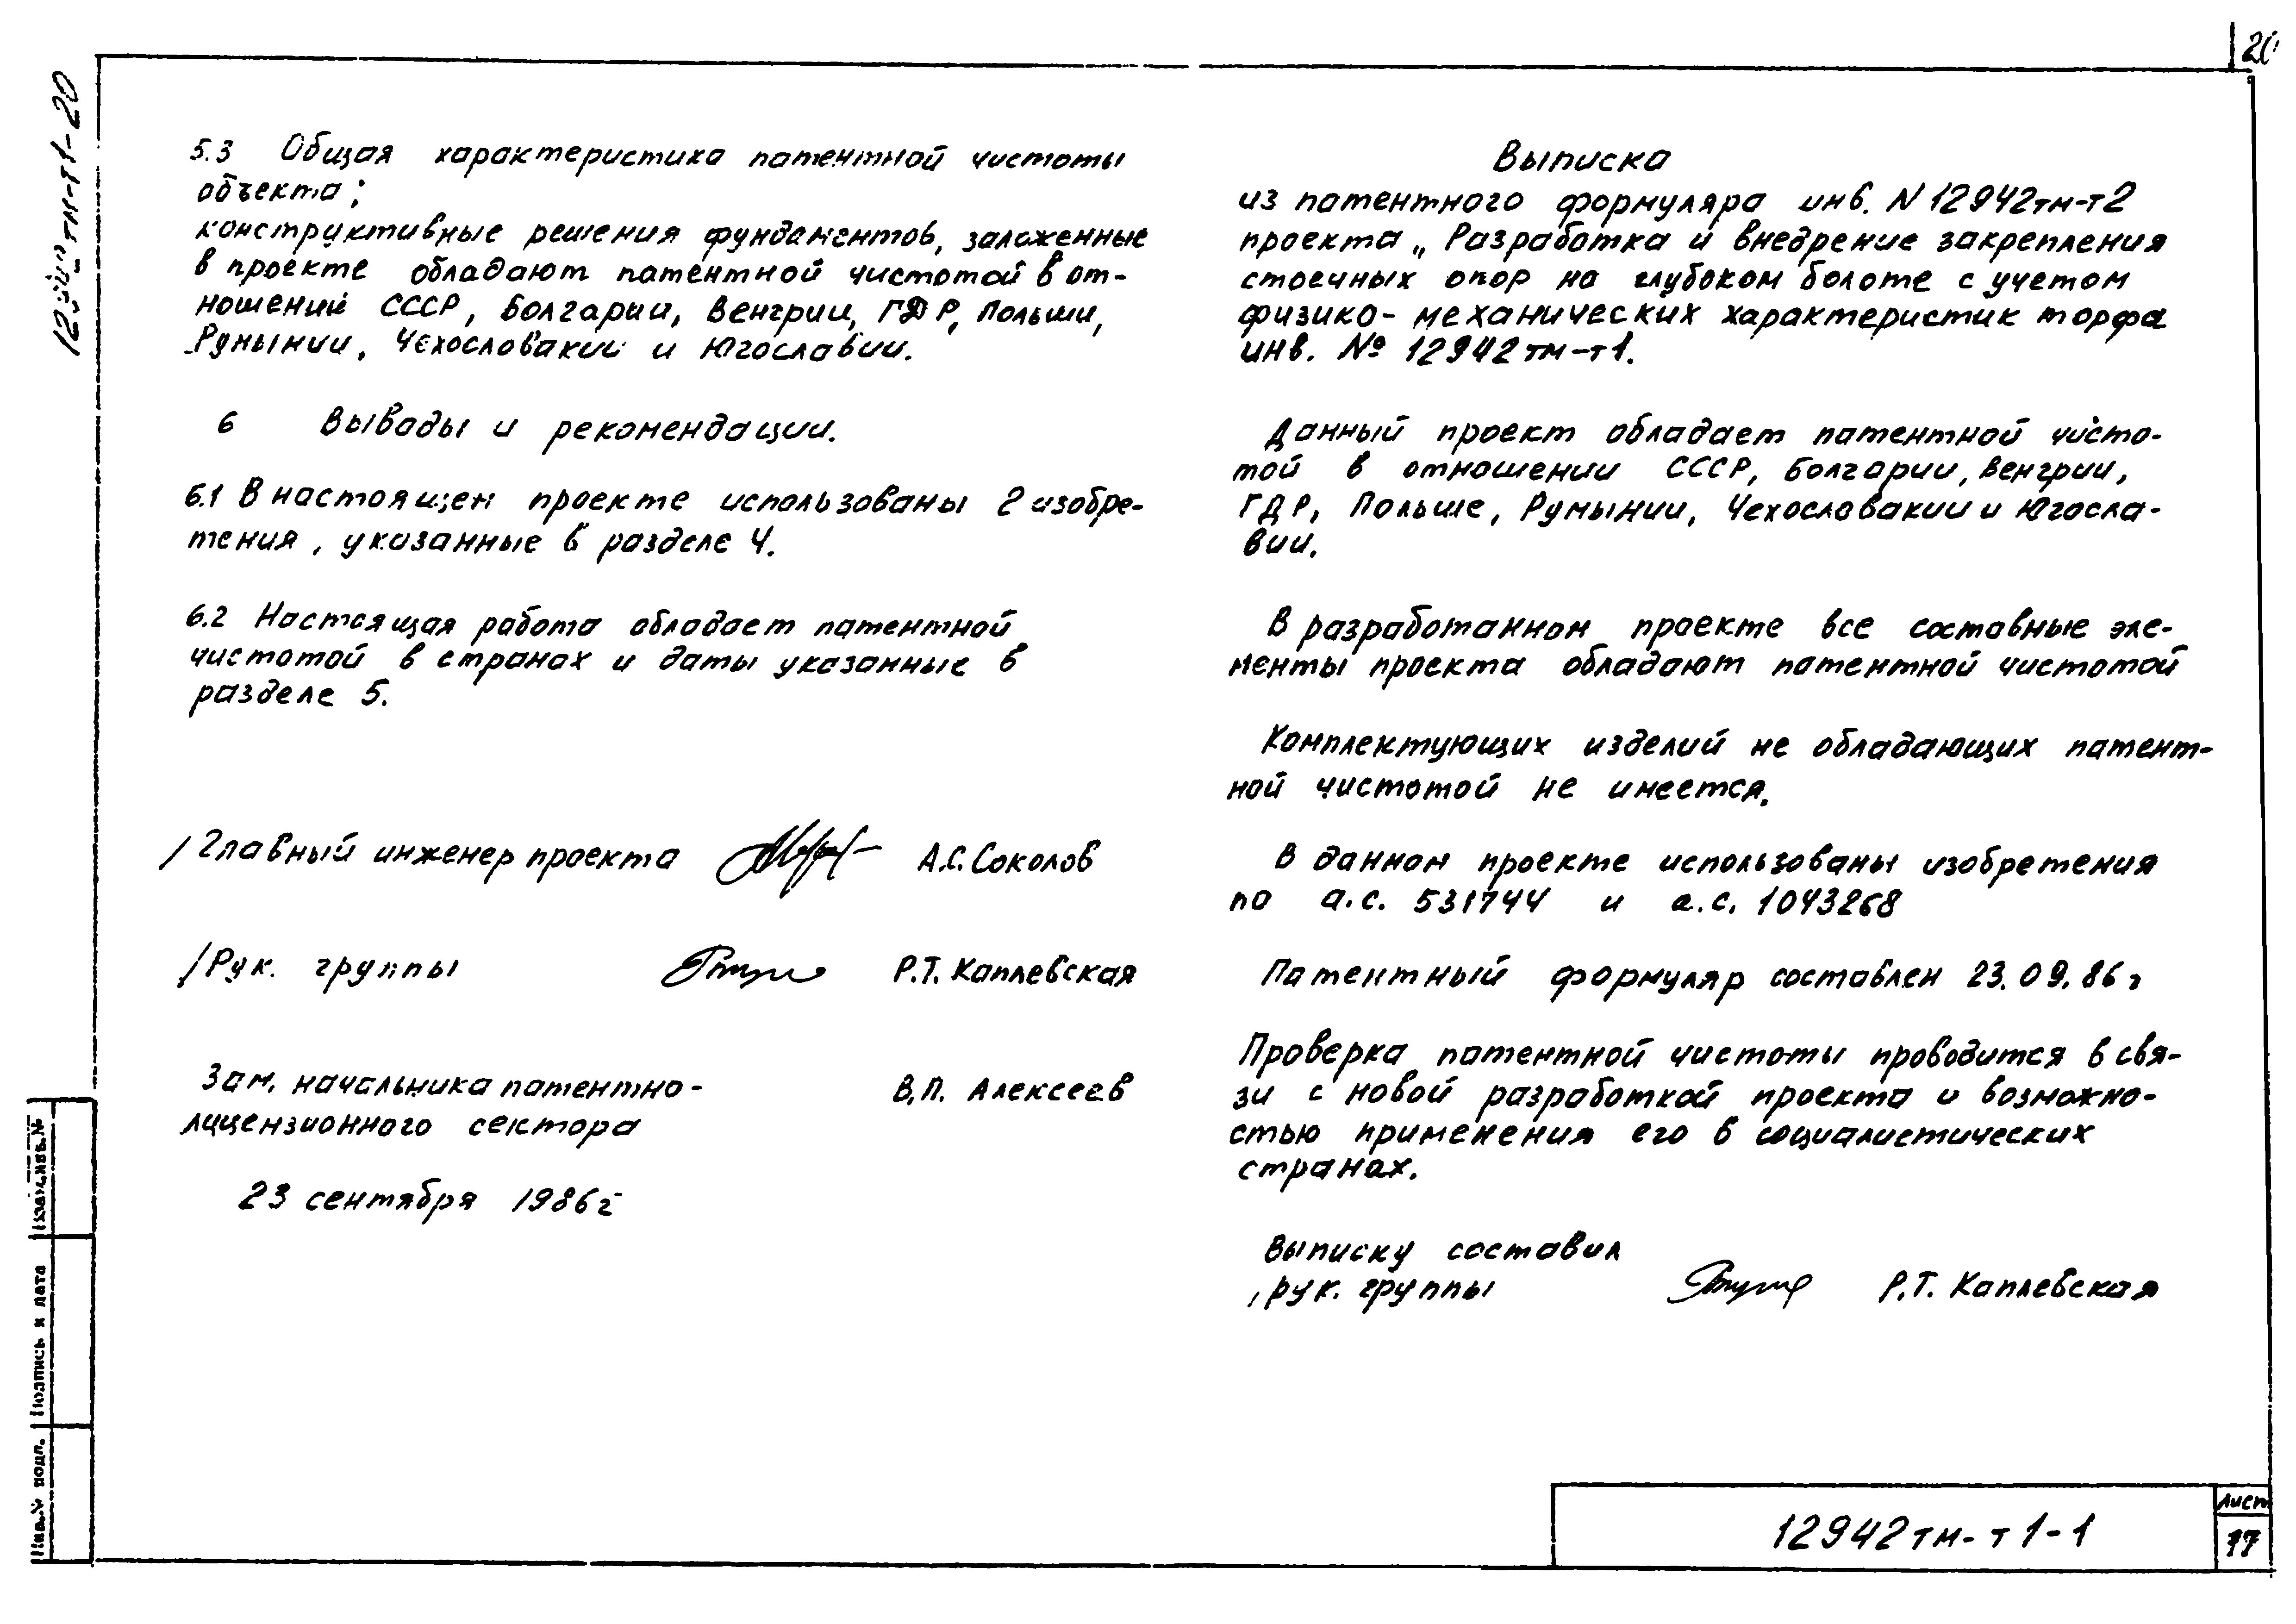 20
5.3 Общая характеристика патентной чистоты
объекта;
конструктивные решения фундаментов, заложенные
в проекте обладают патентной чистотой в от-
ношений СССР, Болгарии, Венгрии, ГДР, Польши,
Румынии, Чехословакии и Югославии.
6 Вывады и рекомендации.
6.1 В настоящем проекте использованы 2 изобре-
тения, указанные в разделе 4.
6.2 Настоящая работа обладает патентной
чистотой в странах и даты указанные в
разделе 5.
Главный инженер проекта А.С. Соколов
Рук. группы Р.Т. Каплевская
Зам. начальника патентно-
лицензионного сектора В.П. Алексеев
23 сентября 1986г
Выписка
из патентного формуляра инв. N 12942тм-т2
проекта „Разработка и внедрение закрепления
стоечных опор на глубоком болоте с учетом
физико-механических характеристик торфа
инв. № 12942тм-т1.
Данный проект обладает патентной чисто-
той в отношении СССР, Болгарии, Венгрии,
ГДР, Польше, Румынии, Чехословакии и Югосла-
вии.
В разработанном проекте все составные эле-
менты проекта обладают патентной чистотой
Комплектующих изделий не обладающих патент-
ной чистотой не имеется.
В данном проекте использованы изобретения
по а.с. 531744 и а.с. 1043268
Патентный формуляр составлен 23.09.86г
Проверка патентной чистоты проводится в свя-
зи с новой разработкой проекта и возможно-
стью применения его в социалистических
странах.
Выписку составил
рук. группы Р.Т. Каплевская
Взам.инв.№
Подпись и дата
Инв.№ подл.
12942тм-т1-1
Лист
17